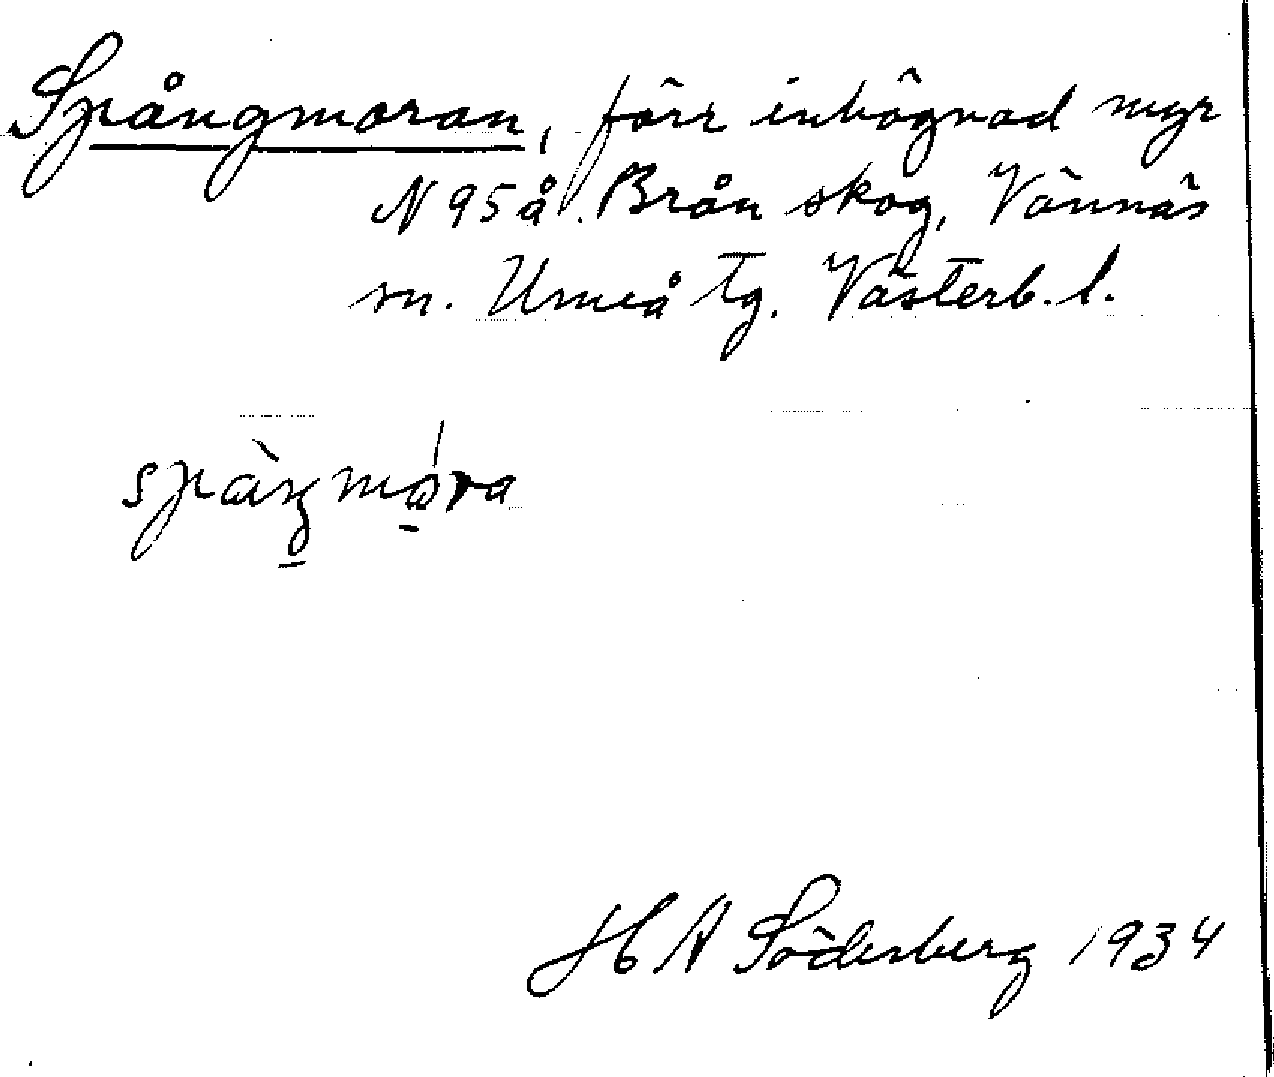 Spångmoran, förr inhägnad myr
N 95 å. Brån skog, Vännäs
sn. Umeå tg. Västerb. l.
H A Söderberg 1934